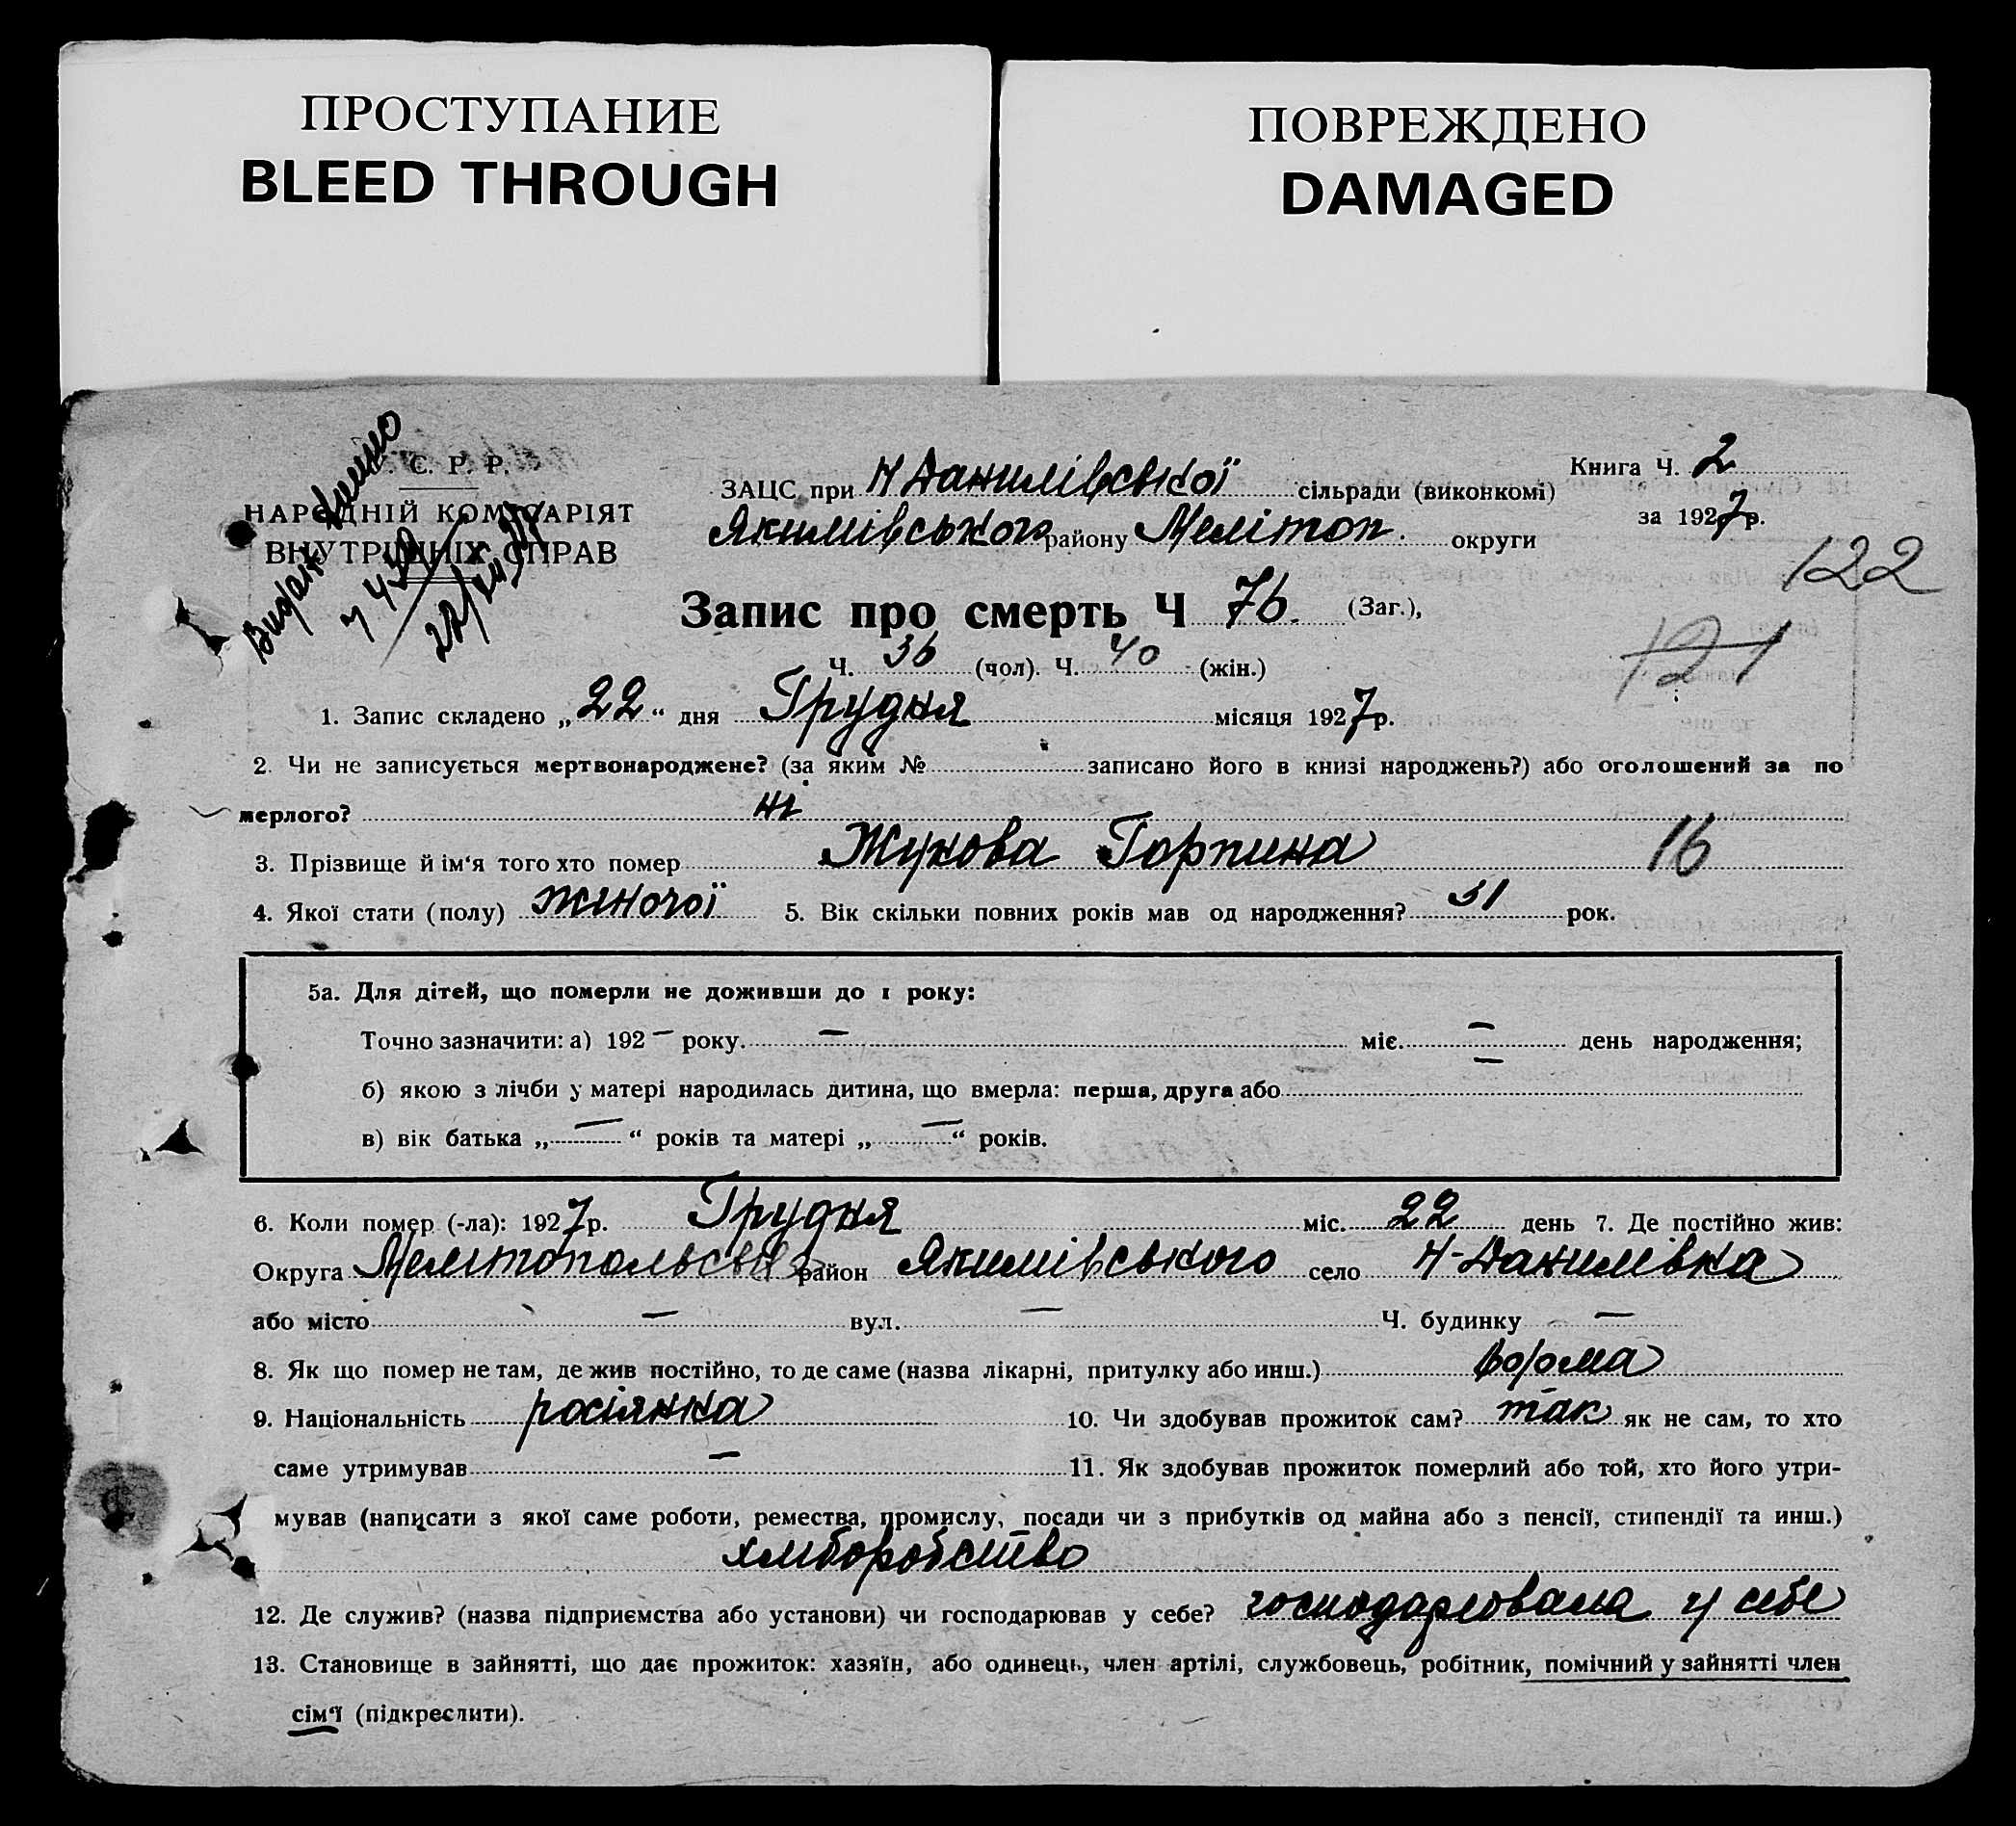 ПРОСТУПАНИЕ
BLEED THROUGH
ПОВРЕЖДЕНО
DAMAGED
С. Р. Р.
НАРОДНІЙ КОМІСАРІЯТ
ВНУТРІШНІХ СПРАВ
ЗАЦС при Н Данилівської сільради (виконкомі)
Якимівського району Мелітоп. округи
Книга Ч. 2
за 1927 р.
122
121
Запис про смерть Ч 76. (Заг.),
Ч. 36 (чол). Ч. 40 (жін.)
1. Запис складено „22“ дня Грудня місяця 1927 р.
2. Чи не записується мертвонароджене? (за яким № записано його в книзі народжень?) або оголошений за по
мерлого? ні
3. Прізвище й ім‘я того хто помер Жукова Горпина 16
4. Якої стати (полу) жіночої 5. Вік скільки повних років мав од народження? 31 рок.
5а. Для дітей, що померли не доживши до 1 року:
Точно зазначити: а) 192 – року. – міс. – день народження;
б) якою з лічби у матері народилась дитина, що вмерла: перша, друга або –
в) вік батька „ – “ років та матері „ – “ років.
6. Коли помер (-ла): 1927 р. Грудня міс. 22 день 7. Де постійно жив:
Округа район Якимівського село Н-Данилівка
або місто – вул. – Ч. будинку –
8. Як що помер не там, де жив постійно, то де саме (назва лікарні, притулку або инш.)
9. Національність росіянка 10. Чи здобував прожиток сам? так як не сам, то хто
саме утримував – 11. Як здобував прожиток померлий або той, хто його утри-
мував (написати з якої саме роботи, ремества, промислу, посади чи з прибутків од майна або з пенсії, стипендії та инш.)
хліборобство
12. Де служив? (назва підприємства або установи) чи господарював у себе? господарювала у себе
13. Становище в зайнятті, що дає прожиток: хазяїн, або одинець, член артілі, службовець, робітник, помічний у зайнятті член
сім‘ї (підкреслити).